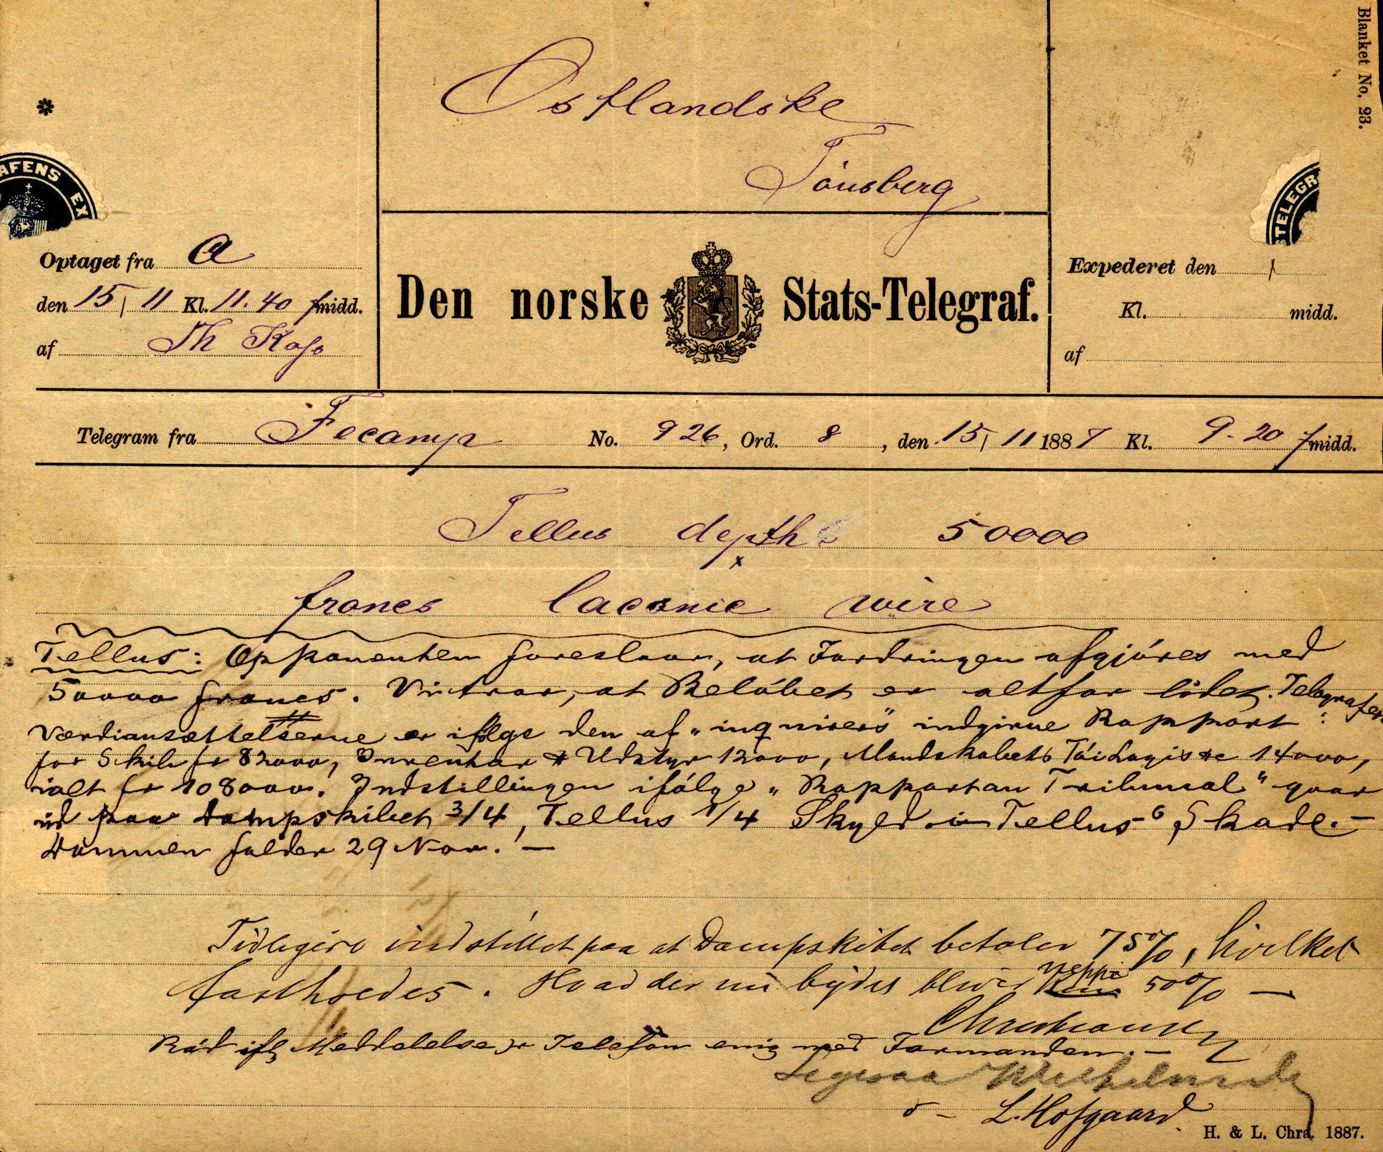 Blanket No. 23.
*
Østlandske
Tönsberg
AFENS EX
TELEGR
Optaget fra A
den 15/11 Kl. 11.40 fmidd.
af Th Kofo
Den norske Stats-Telegraf.
Expederet den /
Kl. midd.
af
Telegram fra Fecamp No. 926, Ord. 8, den 15/11 1887 Kl. 9.20 fmidd.
Tellus depth 50000
francs laconic wire
Tellus: Opponenten foreslaar, at Fordringen afgjöres med
50000 francs. Vi tror, at Belöbet er altfor lidet. Telegrafer
Værdiansættelserne er ifölge den af "inquirers" indgivne Rapport:
for Skib fr 82000, Inventar & Udstyr 12000, Mandskabets Töi Logis &c 14000,
ialt fr 108000. Indstillingen ifölge "Rapport au Tribunal" gaar
ud paa Dampskibet 3/4, Tellus 1/4 Skyld i Tellus's Skade. —
Dommen falder 29 Nov. —
Tidligere indstillet paa at Dampskibet betaler 75%, hvilket
fastholdes. Hvad der nu bydes bliver neppe 50% —
Christiansen
Råd ifg Meddelelse pr Telefon enig med Formanden. —
Ligesaa Wilhelmsen
d - L. Hofgaard.
H. & L. Chra. 1887.